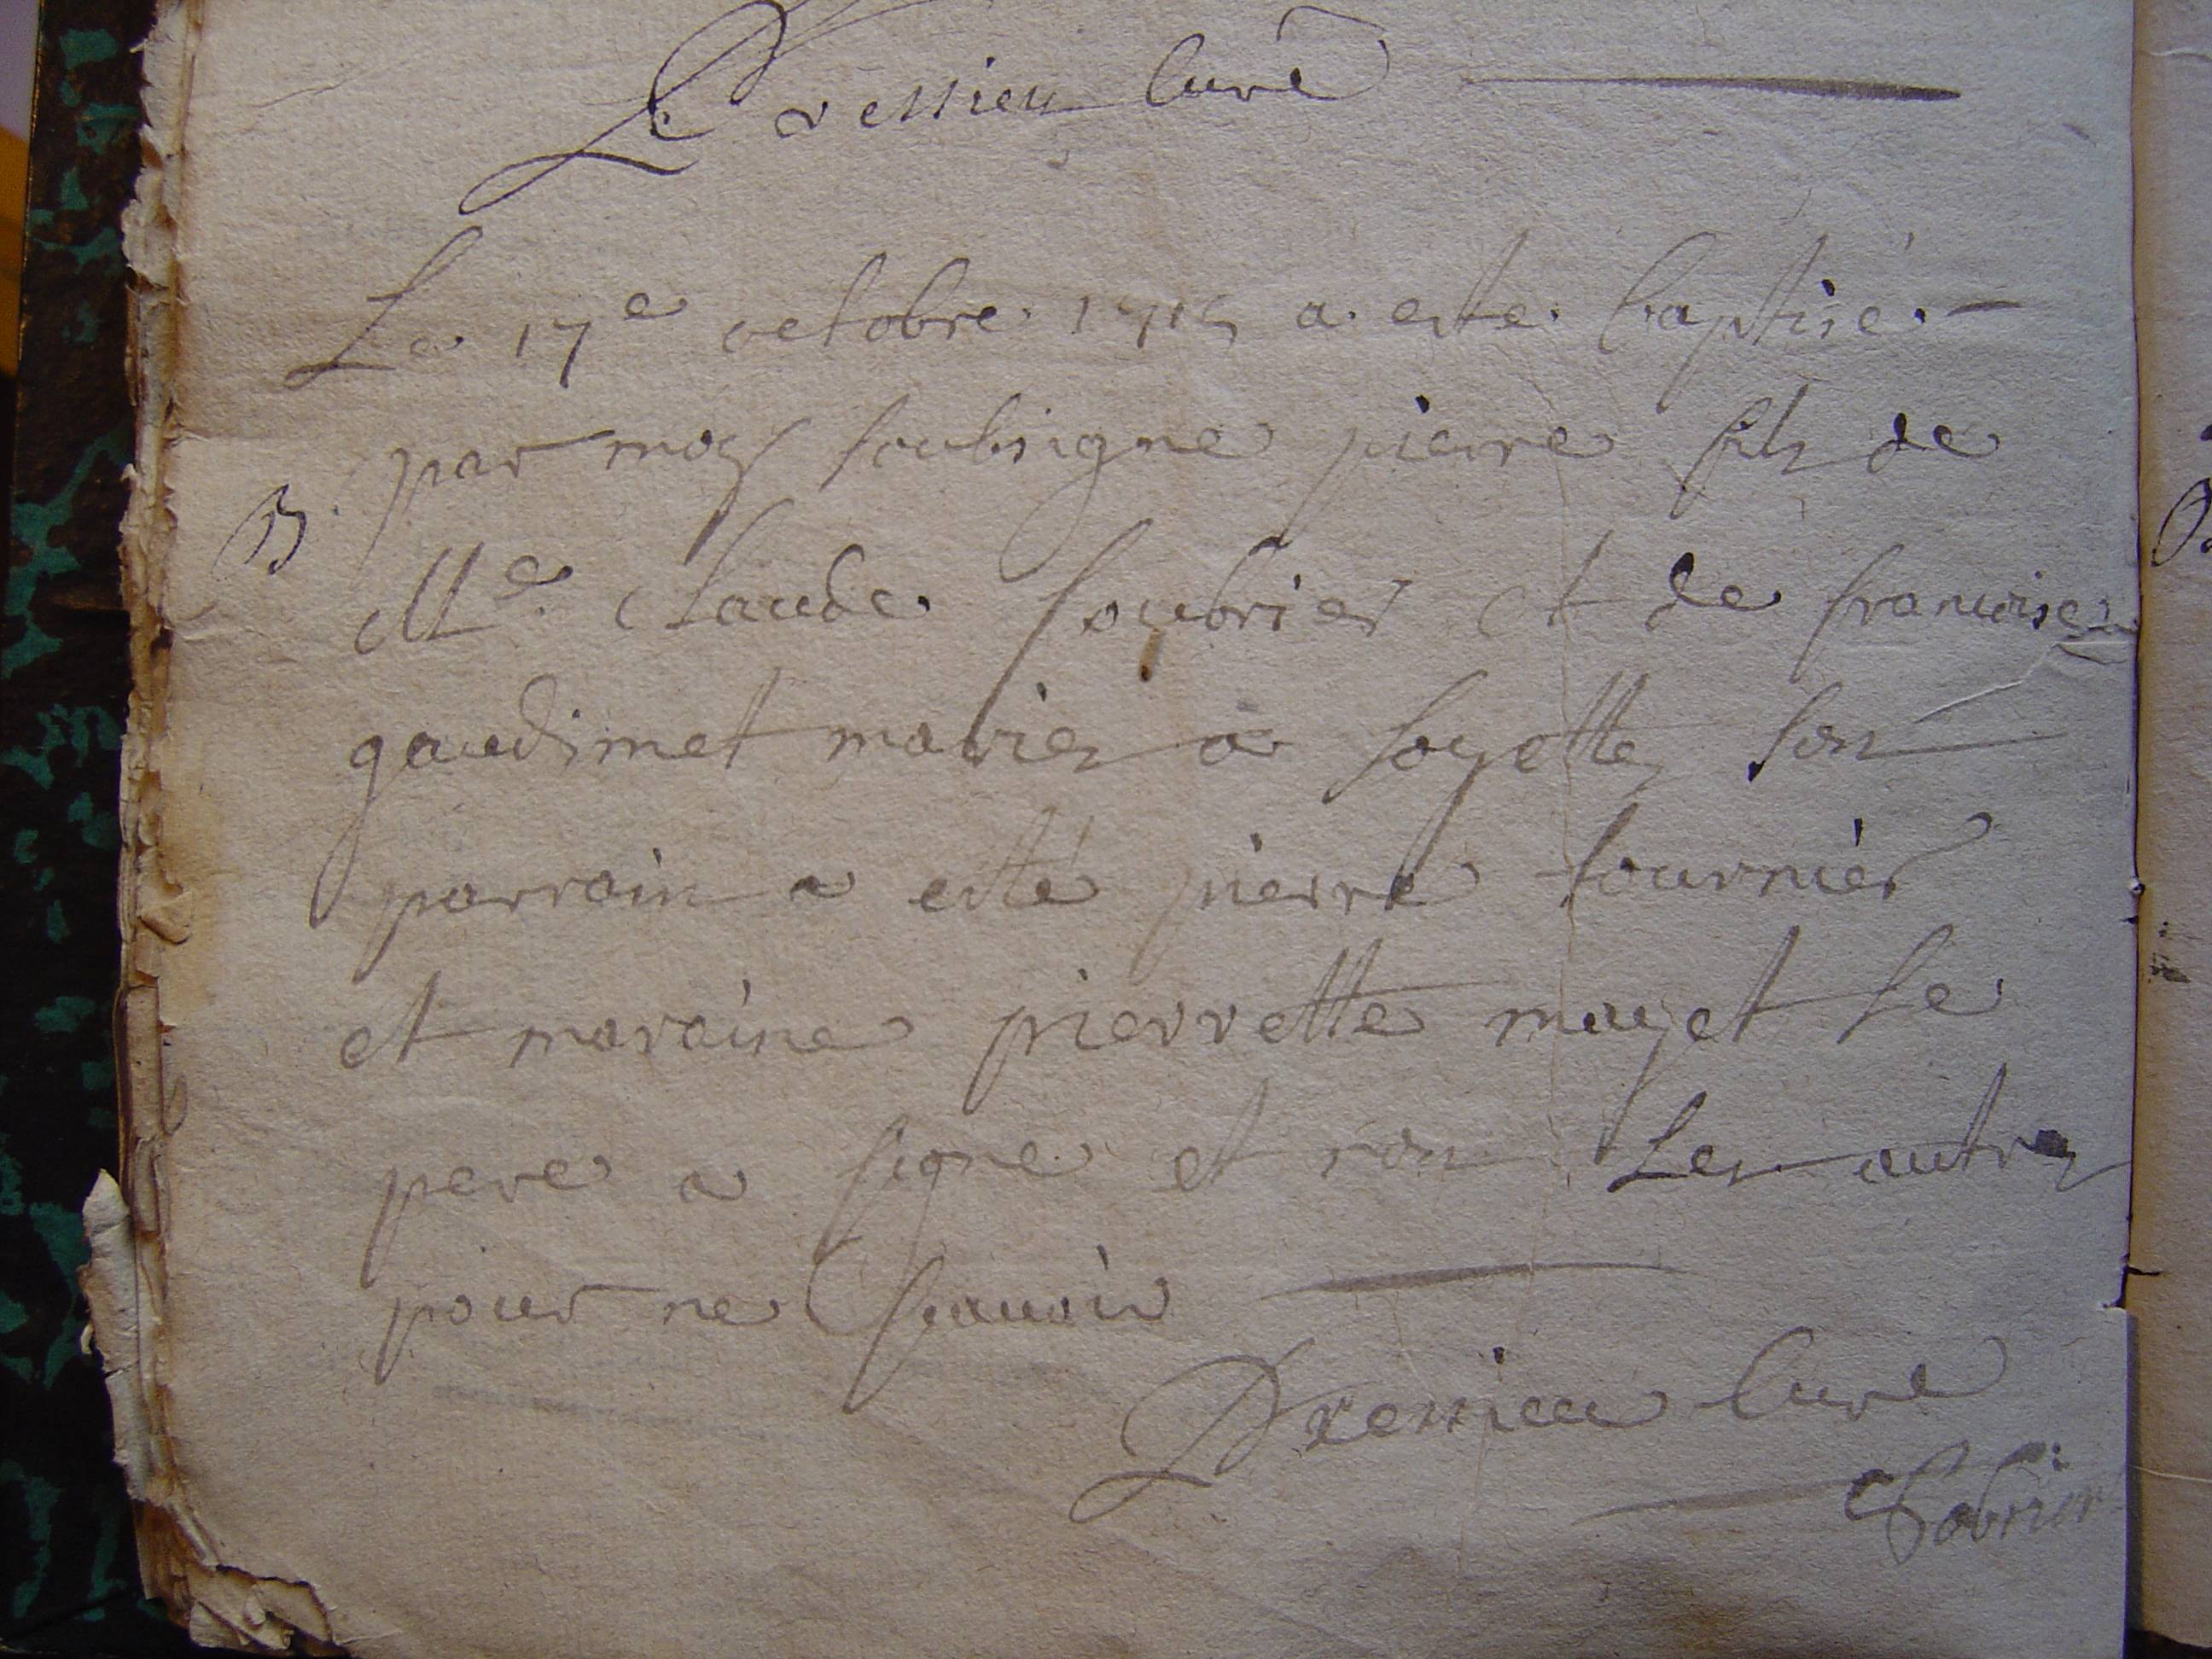 Dressieu Curé
Le 17e octobre 1715 a esté baptisé
par moy soubsigne pierre fils de
B. Me Claude soubrier et de francoise
gaudimet mariez a soyette son
parrain a esté pierre fournier
et maraine pierrette mayet le
pere a signe et non Les autres
pour ne sçavoir
Dressieu Curé
Sobrier